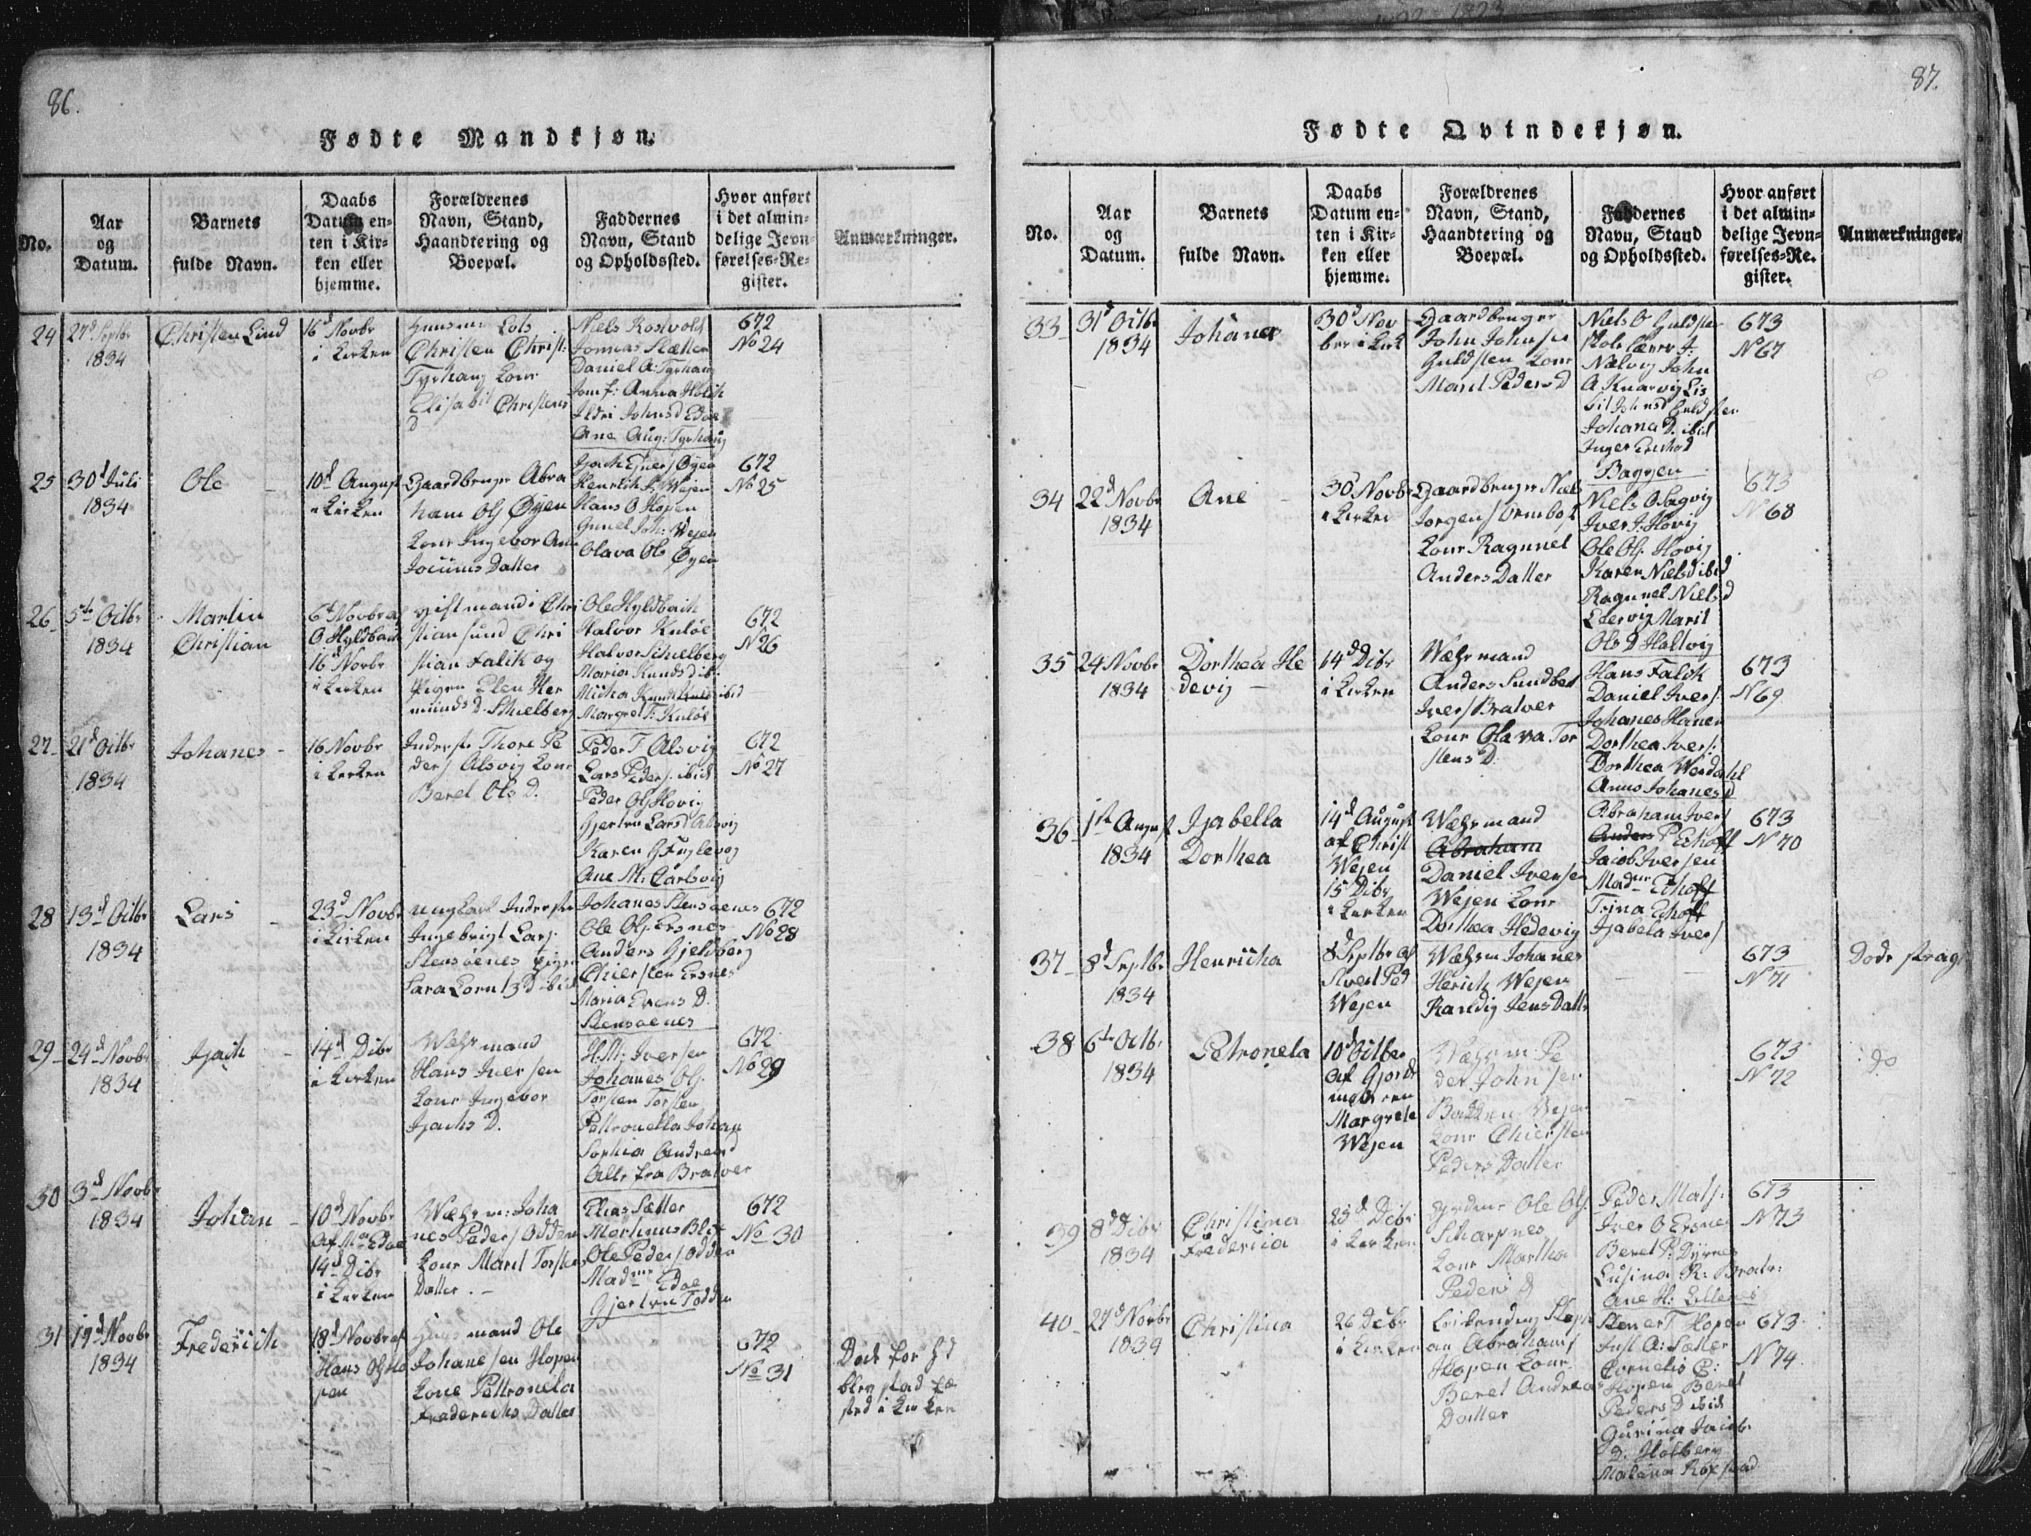 86.
Fødte Mandkjøn.
No.
Aar
og
Datum.
Barnets
fulde Navn.
Daabs
Datum en-
ten i Kir-
ken eller
hjemme.
Forældrenes
Navn, Stand,
Haandtering og
Boepæl.
Faddernes
Navn, Stand
og Opholdssted.
Hvor anført
i det almin-
delige Jevn-
førelses-Re-
gister.
Anmærkninger.
24
27d Septbr
1834
Christen Lind
16d Novbr
i Kirken
Christen Christ:
Tyrhaug Kone
Elisabet Christens
D
Niels Rosvold
Jonnas Slætter
Daniel A: Tyrhaug
Jomf: Anna Holck
Ildri Johnsd Edøe
Ane Aug: Tyrhaug
672
No 24
25
30d Juli
1834
Ole
10d August
i Kirken
Gaardbruger Abra
ham Ols Øyen
Kone Ingebor An
Jociims Datter
Henrich Wejen
Hans O Hopen
Gunel Joh: Wejen
Olava Ols Øyen
672
No 25
26
5te Octbr
1834
Martin
Christian
6d Novbr af
O Hyldbach
16d Novbr
i Kirken
gift mand i Chri
stiansund Chri
stian Falik og
Pigen Elen Her
munds D. Skielberg
Ole Hyldbach
Halvor Kuløe
Halvor Schielberg
Maria Knudsd ib:
Margret T: Kuløe
672
No 26
27
21d Octbr
1834
Johanes
16 Novbr
i Kirken
Inderste Thore Pe
ders Alsvig Kone
Beret Ols D.
Peder T Alsvig
Lars Peders: ibid
Peder Ols Hovig
Gjertru Larsd Alsvig
Karen G Fuglevog
Ane M: Carlsvig
672
No 27
28
13d Octbr
1834
Lars
23d Novbr
i Kirken
ungkarl Inderste
Ingebrigt Lars:
Stensøenes Pigen
Sara Lornts D ibid
Johanes Stensøenes
Ole Ols: Ersnes
Anders Gjeldberg
Chiersten Ersnes
Maria Evens D.
Stensøenes
672
No 28
29
24d Novbr
1834
Isach
14d Dcbr
i Kirken
Wæhrmand
Hans Iversen
Kone Ingebor
Isachs D.
H: M: Iversen
Johanes Ols:
Torsten Torsten
Pettronella Johan
Sophia Andreasd
Alle fra Bratvær
672
No 29
30
3d Novbr
1834
Johan
10d Novbr
Af Mr Edøe
14d Dcbr
i Kirken
Wæhrm: Joha
nes Peders Odden
Kone Marit Torstens
Datter.
Elias Sætter
Martinus Blix
Ole Peders Odden
Madme Edøe
Gjertru T odden
672
No 30
31
17d Novbr
1834
Frederich
18d Novbr af
Hans Ols Ho
pen
Huusmand Ole
Johanesen Hopen
Kone Pettronela
Frederichs Datter
672
No 31
Død før Hd
blev stad fæ
sted i Kirken
87.
Fødte Qvindekjøn.
No.
Aar
og
Datum.
Barnets
fulde Navn.
Daabs
Datum en-
ten i Kir-
ken eller
hjemme.
Forældrenes
Navn, Stand,
Haandtering og
Boepæl.
Faddernes
Navn, Stand
og Opholdssted.
Hvor anført
i det almin-
delige Jevn-
førelses-Re-
gister.
Anmærkninger.
33
31d Octbr
1834
Johana
30d Nov
ber i Kirk
Gaardbruger
John Johnsen
Guldsten Kone
Marit Peders D
Niels O Guldsten
skolelærer J:
Nælvig John
A Knarvig Lis
bit Johnsd Guldsten
Johana D. ibid
Inger Erichsd
Baggen
673
No 67
34
22d Novbr
1834
Ane
30d Novbr
i Kirken
Gaardbruger Niels
Jorgens Ormbostad
Kone Ragnnel
Anders Datter
Niels O Sagvig
Iver J: Hovig
Ole Ols: Hovig
Karen Nielsd ibid
Ragnnel Nielsd
Marit
Ols D Haltvig
673
No 68
35
24 Novbr
1834
Dorthea He
devig
14d Dcbr
i Kirken
Wæhrmand
Anders Sundbet
Ivers Bratver
Kone Olava Tor
stens D.
Hans Falck
Daniel Ivers:
Johanes Hansen
Dorthea Ivers:
Dorthea Werdahl
Anne Johanes D
673
No 69
36
1ste August
1834
Isabella
Dorthea
14d August
af Christ
Wejen
15 Dcbr
i Kirken
Wæhrmand
Abraham
Daniel Iversen
Wejen Kone
Dorthea Hedevig
Abraham Ivers
Anders P Echoff
Jacob Iversen
Madme Echoff
Trina Echoff
Isabela Ivers
673
No 70
37
8d Septbr
1834
Henricha
8d Septbr af
Sivert Ped
Wejen
Wæhrm Johanes
Herich Wejen
Randig Jens Datter
673
No 71
Døde strags
38
6te Octbr
1834
Petronela
10d Octber
Af Gjord
moderen
Margrete
Wejen
Wæhrm: Pe
der Johnsen
Bakken Wejen
Kone Chiersten
Peders Datter
673
No 72
do
39
8d Dcbr
1834
Christina
Fredericia
25d Dcbr
i Kirken
Ole Ols:
Scharpnes
Kone Martha
Peders D
Peder Mats:
Iver O Ersnes
Beret P: Dyrnes
Lusina R: Bratv:
Ane H: Lillenes
673
No 73
40
27d Novbr
1834
Christina
26 Dcbr
i Kirken
an Abrahams
Hopen Kone
Beret Andreas
Datter
Stener T Hopen
Just A: Sætter
Cornelis C:
Hopen Beret
Peders D ibid
Gurina Jacobs
D. Holberg
Malena Roxstad
673
No 74